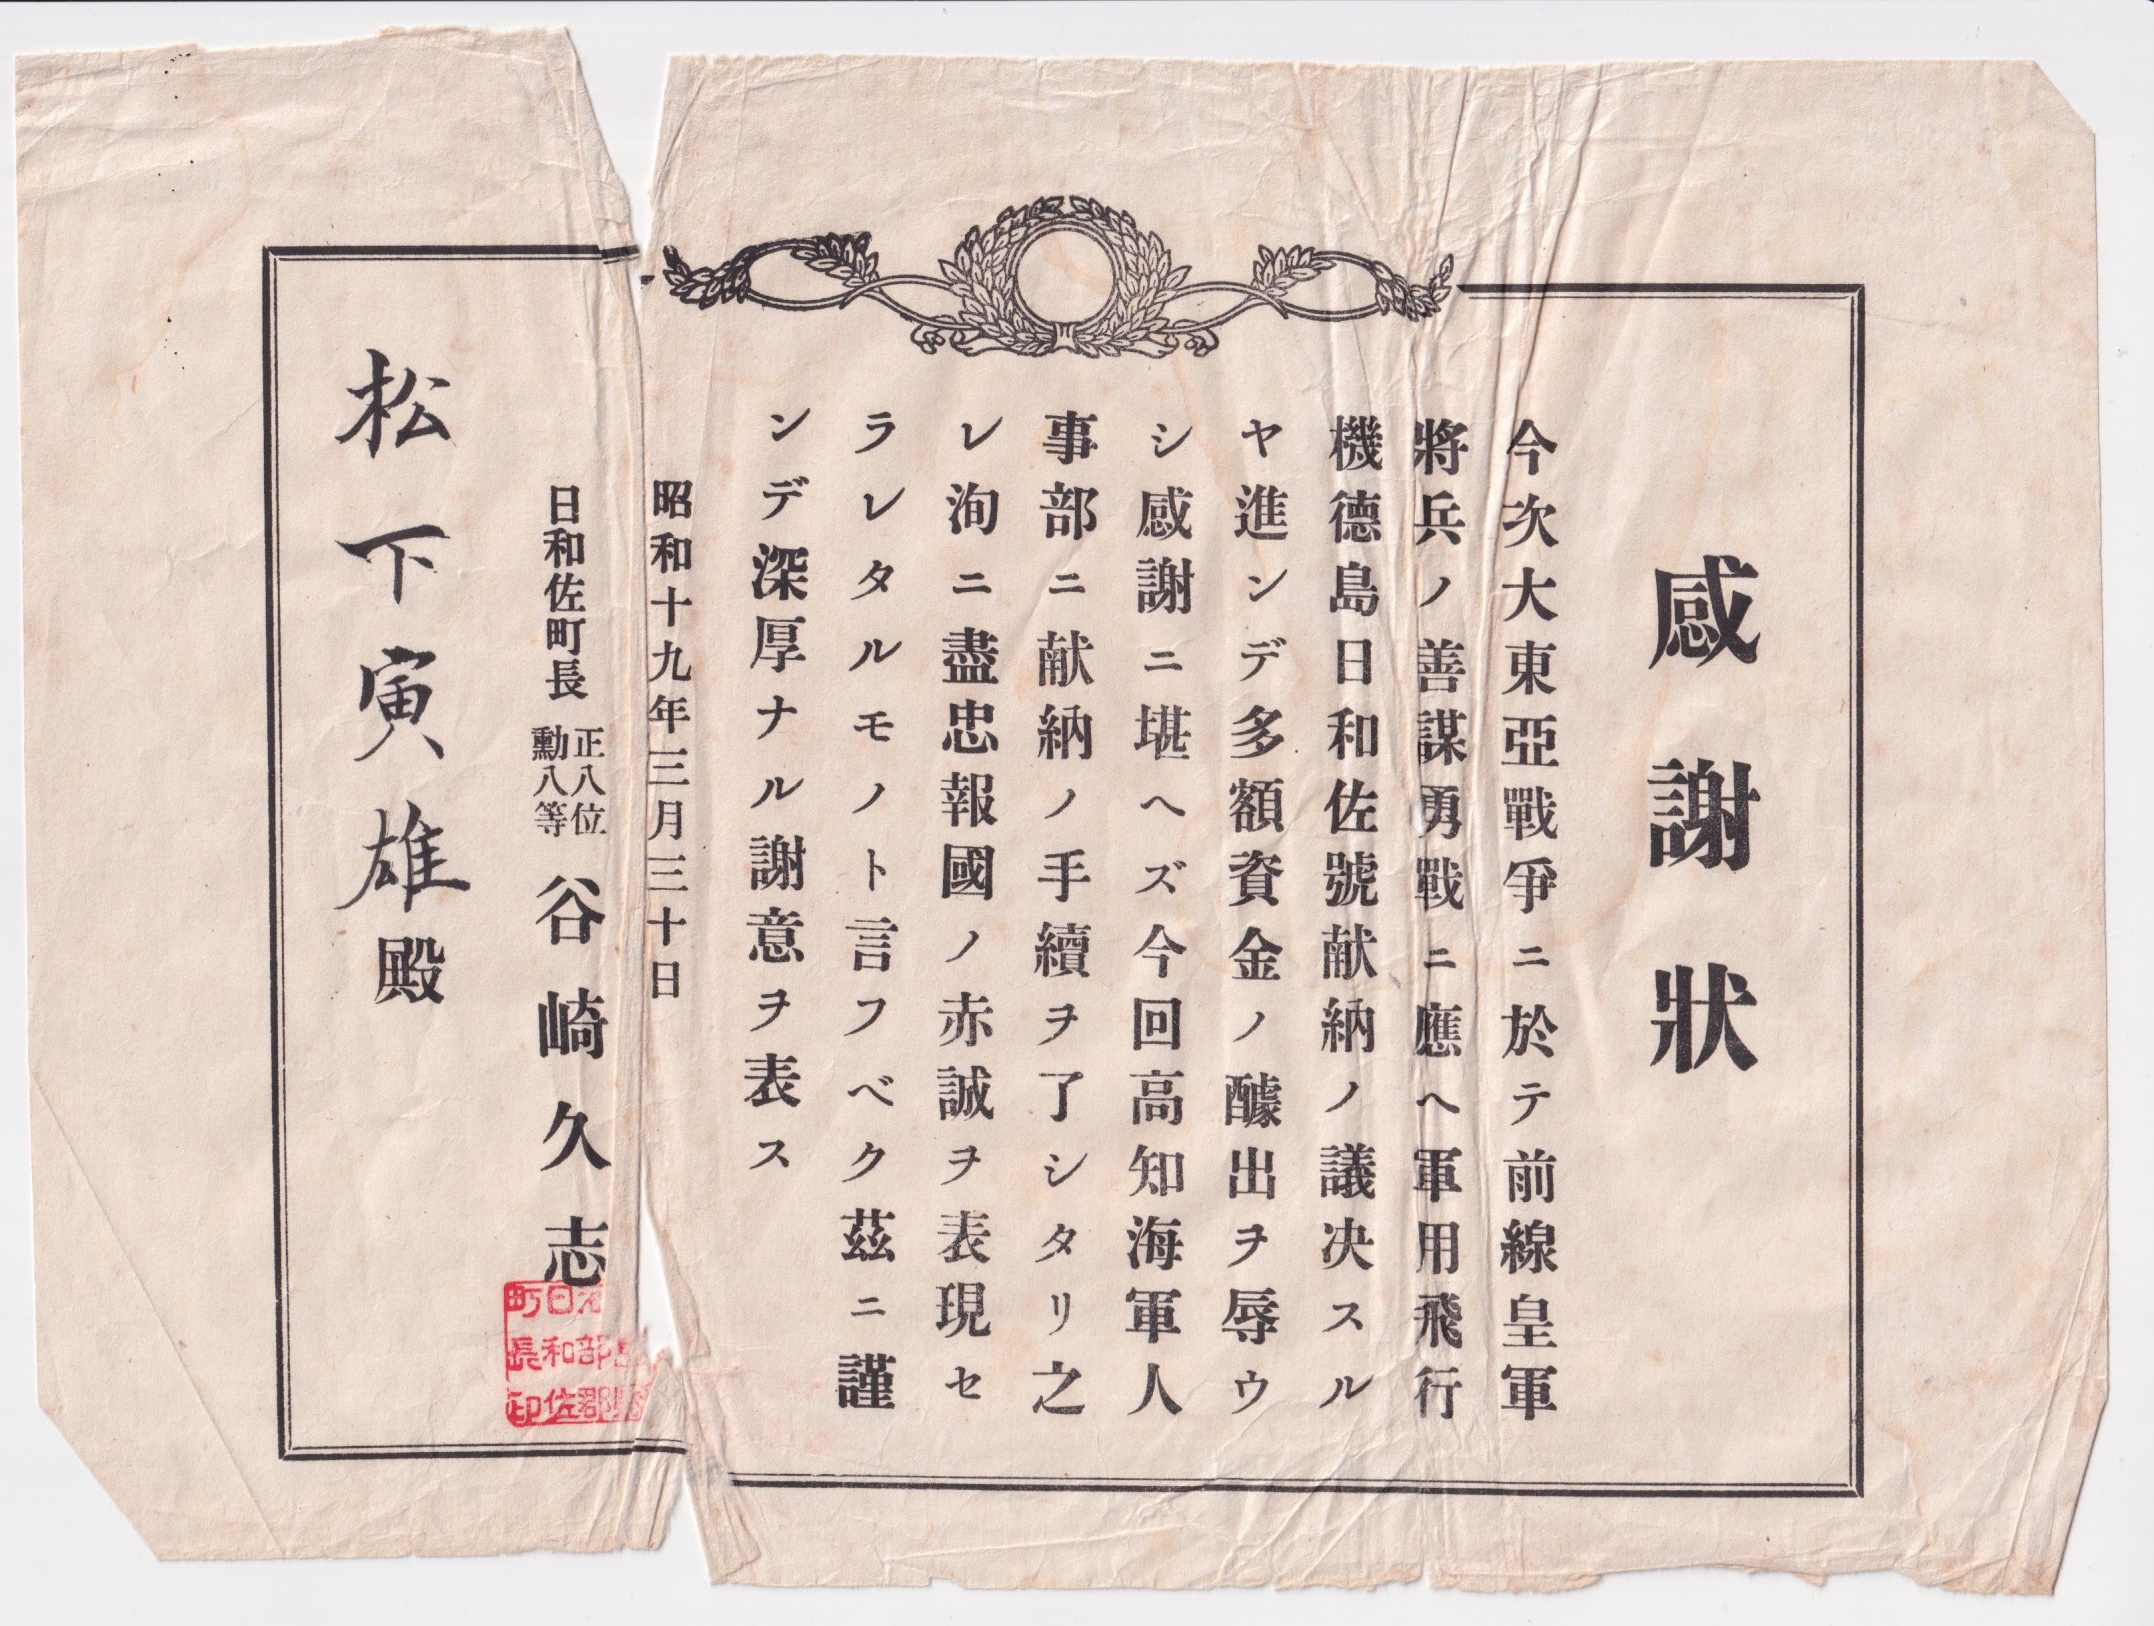 感謝狀
今次大東亞戰爭ニ於テ前線皇軍
將兵ノ善謀勇戰ニ應ヘ軍用飛行
機德島日和佐號献納ノ議决スル
ヤ進ンデ多額資金ノ醵出ヲ辱ウ
シ感謝ニ堪ヘズ今回高知海軍人
事部ニ献納ノ手續ヲ了シタリ之
レ洵ニ盡忠報國ノ赤誠ヲ表現セ
ラレタルモノト言フベク茲ニ謹
ンデ深厚ナル謝意ヲ表ス
昭和十九年三月三十日
日和佐町長 正八位 勳八等 谷崎久志
松下寅雄殿
部郡
日和佐
町長印